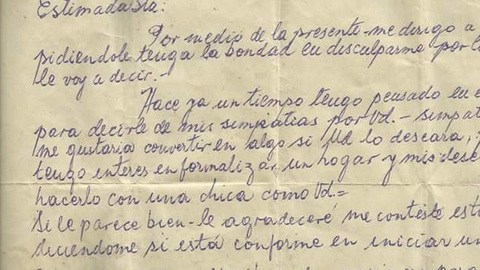 Estimada Sta:
Por medio de la presente-me dirigo a
pidiendole tenga la bondad en disculparme por l
le voy a decir.-
Hace ya un tiempo tengo pensado en e
para decirle de mis simpatias por Vd.- simpat
me gustaria convertir en algo si Ud lo deseara,
tengo interes en formalizar un hogar y mis dese
hacerlo con una chica como Vd.=
Si le parece bien-le agradeceré me conteste est
diciendome si está conforme en iniciar un